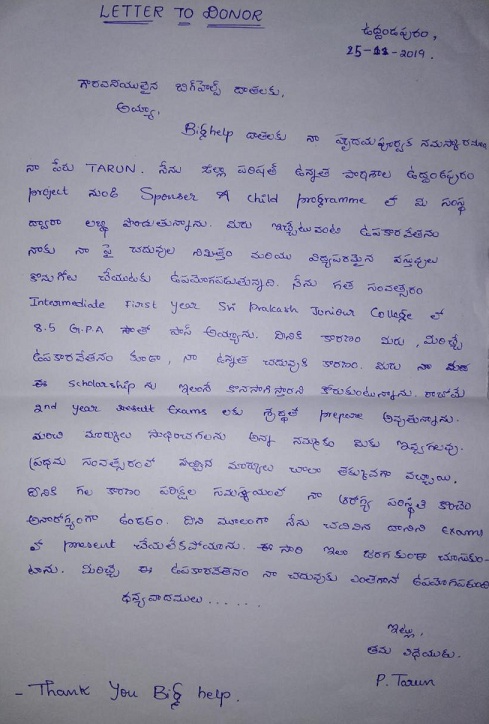 LETTER TO DONOR
ఉద్దండపురం,
25-11-2019.
గౌరవనీయులైన బిగ్‌హెల్ప్ దాతలకు,
అయ్యా,
Bighelp దాతలకు నా హృదయపూర్వక నమస్కారములు
నా పేరు TARUN. నేను జిల్లా పరిషత్ ఉన్నత పాఠశాల ఉద్దండపురం
project నుండి Sponser A child programme లో మీ సంస్థ
ద్వారా లబ్ధి పొందుతున్నాను. మీరు ఇచ్చేటువంటి ఉపకారవేతనం
నాకు నా పై చదువుల నిమిత్తం మరియు విద్యాపరమైన వస్తువులు
కొనుగోలు చేయుటకు ఉపయోగపడుతున్నది. నేను గత సంవత్సరం
Intermediate First year Sri Prakash Juniour College లో
8.5 G.P.A తో పాస్ అయ్యాను. దీనికి కారణం మీరు, మీరిచ్చే
ఉపకారవేతనం కూడా, నా ఉన్నత చదువుకి కారణం. మీరు నా
ఈ scholarship ను ఇలానే కొనసాగిస్తారని కోరుకుంటున్నాను. రాబోయే
2nd year Exams లకు శ్రద్ధతో prepare అవుతున్నాను.
మంచి మార్కులు సాధించగలను అన్న నమ్మకం మీకు ఇవ్వగలను.
ప్రథమ సంవత్సరంలో వచ్చిన మార్కులు చాలా తక్కువగా వచ్చాయి.
దీనికి గల కారణం పరీక్షల సమయంలో నా ఆరోగ్య పరిస్థితి కొంచెం
అనారోగ్యంగా ఉండడం. దీని మూలంగా నేను చదివిన దానిని exams
లో present చేయలేకపోయాను. ఈ సారి ఇలా జరగకుండా చూసుకుం-
టాను. మీరిచ్చే ఈ ఉపకారవేతనం నా చదువుకు ఎంతగానో ఉపయోగపడుతుంది
ధన్యవాదములు......
ఇట్లు,
తమ విధేయుడు.
P. Tarun
- Thank You Big help.